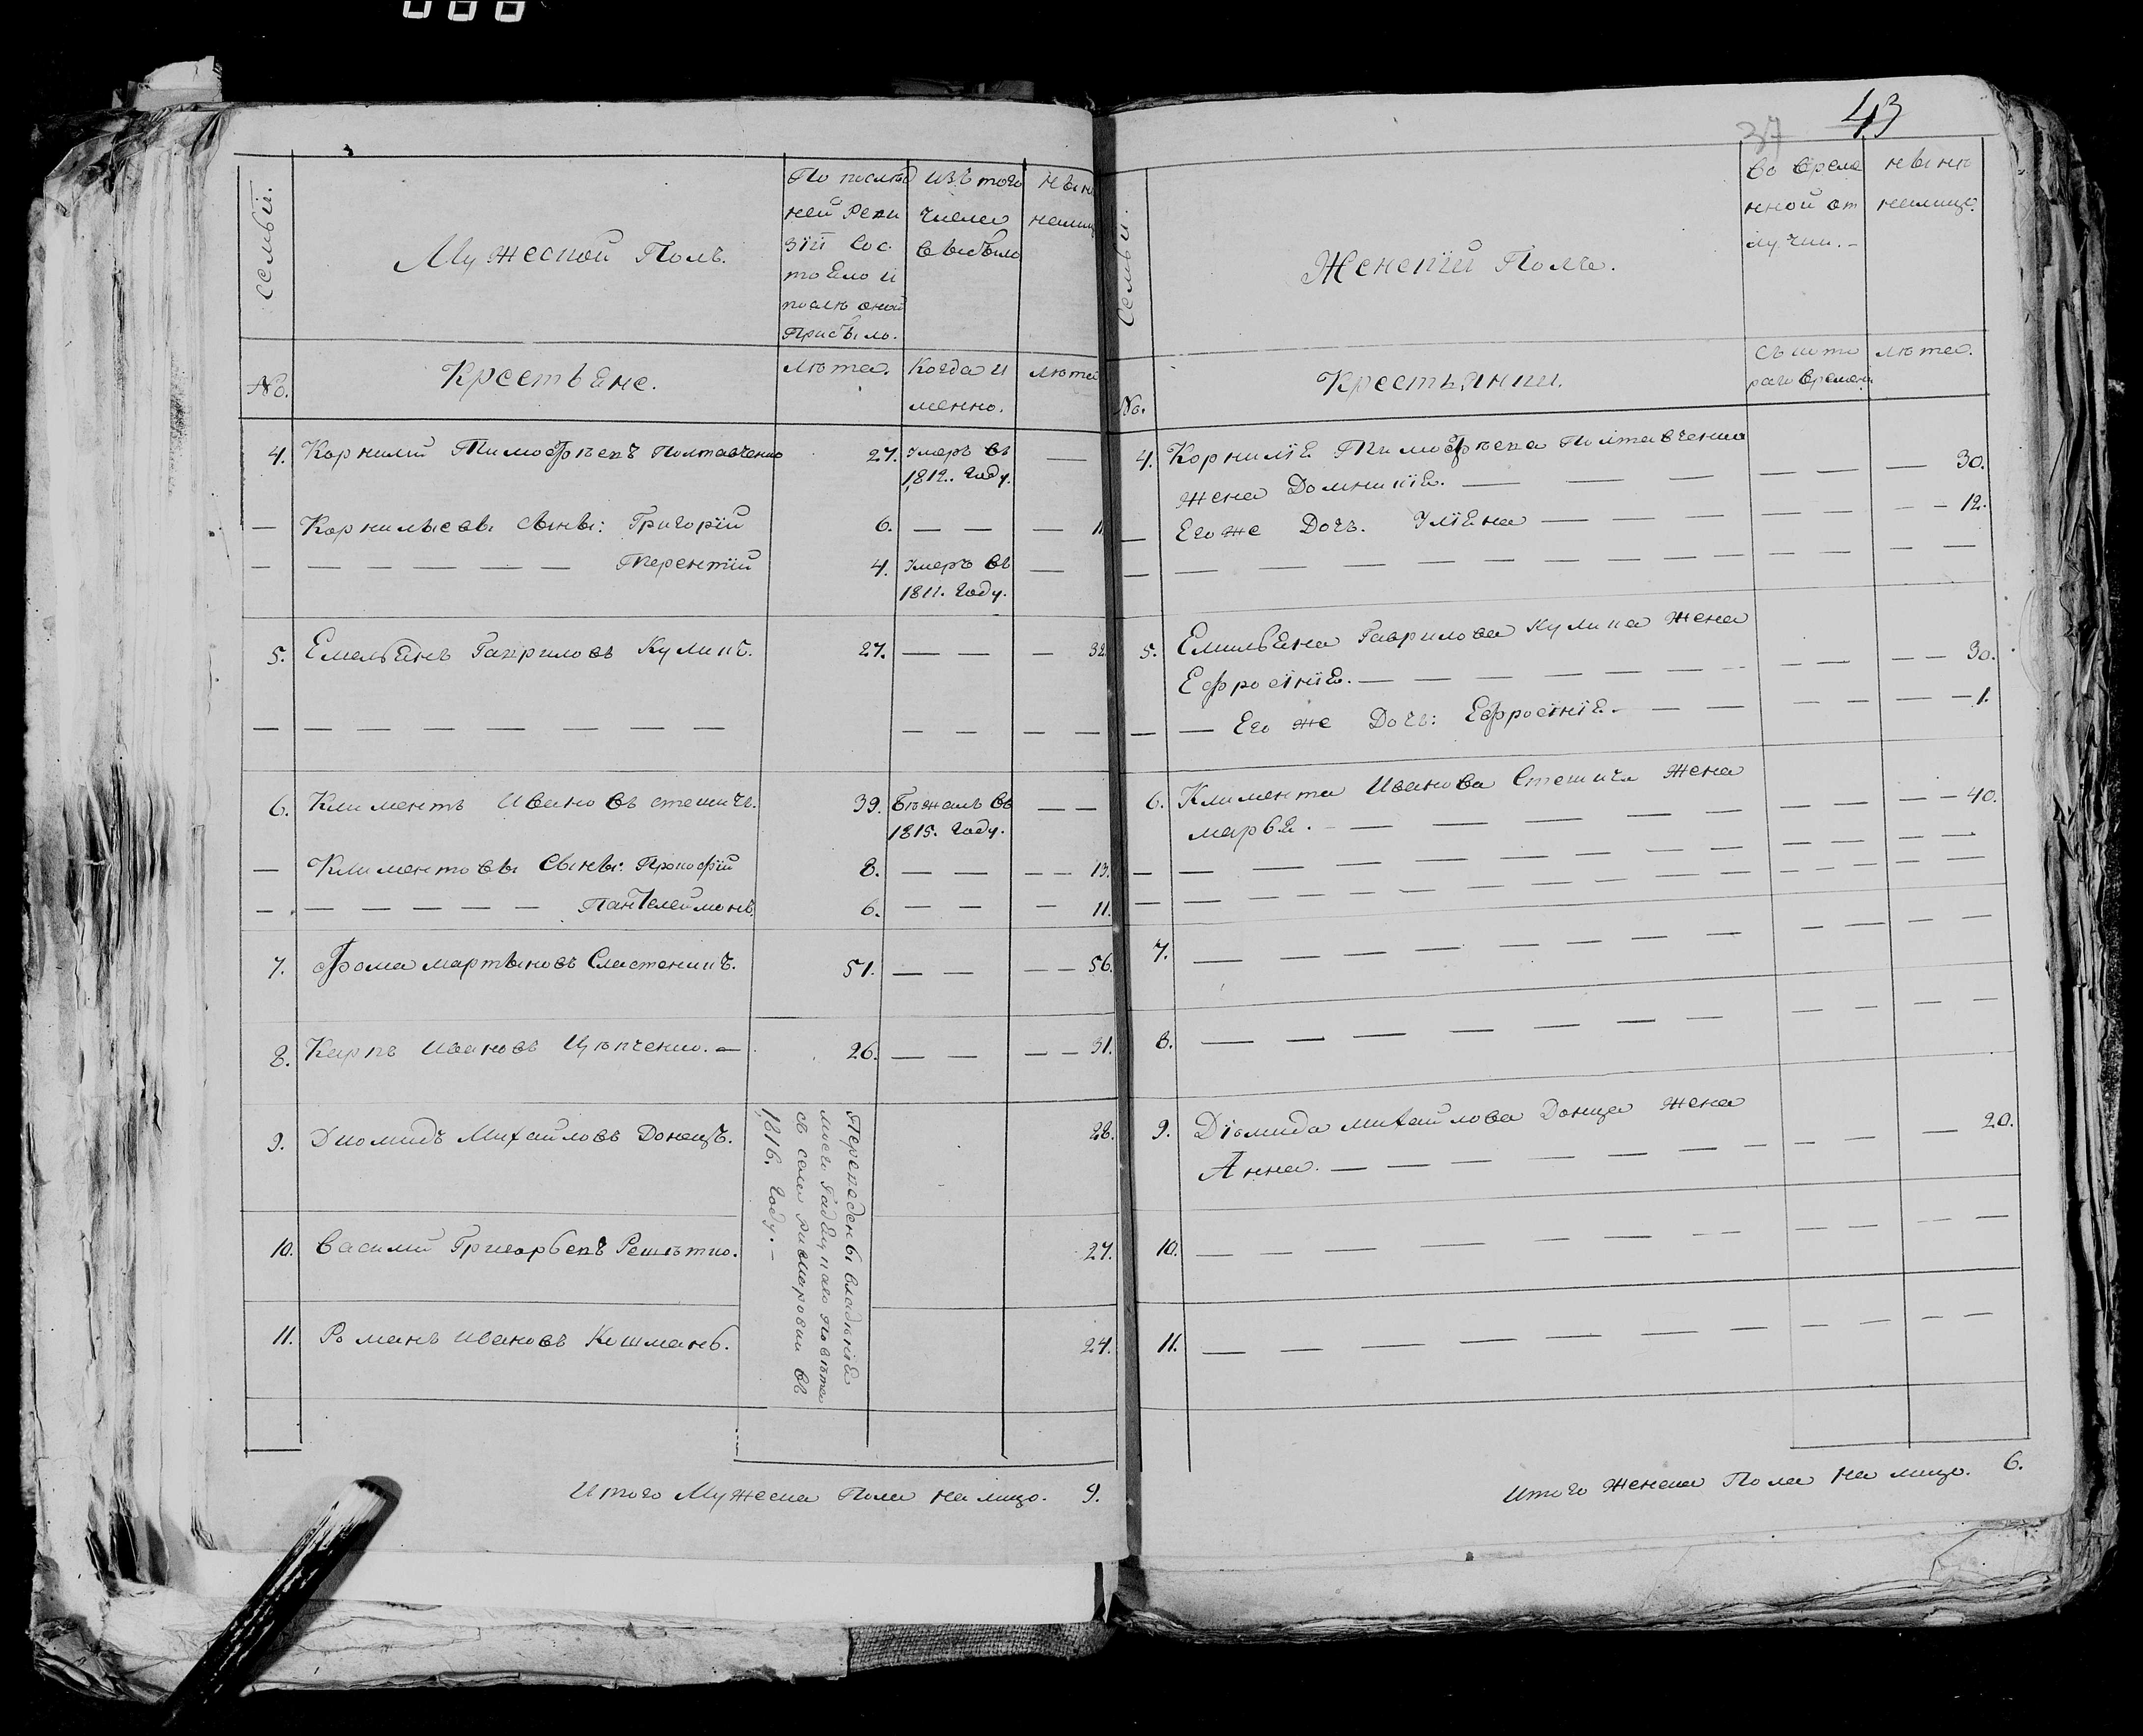 Семьи.
Мужеской Полъ.
По послѣд
ней Реви
зіи Сос
тояло и
послѣ оной
Прибыло.
изъ того
числа
выбыло
нынѣ
налицо
№.
Крестьяне.
лѣта.
Когда и
менно.
лѣта
4. Корнилій Тимофѣевъ Полтавченко 27. Умеръ въ —
1812. Году.
— Корнильевы сыны: Григорій 6. — — — 11
— — — — — — — Терентій 4. Умеръ въ —
1811. Году.
5. Емельянъ Гавриловъ Куликъ. 27. — — — 32
6. Климентъ Ивановъ Стешичъ. 39. Бѣжалъ въ — —
1815. Году.
— Климентовы Сыны: Прокофій 8. — — — — 13.
— — — — — — — Пантелеймонъ 6. — — — 11.
7. Фома Мартыновъ Сластенинъ. 51. — — — — 56.
8. Карпъ Ивановъ Цѣпченко. — 26. — — — — 31.
9. Диомидъ Михайловъ Донецъ. 28.
10. Василій Григорьевъ Решѣтко. 27.
11. Романъ Ивановъ Кошмань. 24.
Переведены владѣнія
моего Гадяцкаго Повѣта
съ села Рымаровки въ
1816. Году. —
Итого Мужеска Пола на лицо. 9.
37 43
Семьи.
Женскій Полъ.
Во време
нной от
лучки. —
нынѣ
налицо.
№.
Крестьянки.
съ кото
раго времени
лѣта.
4. Корнилія Тимофѣева Полтавченка
жена Домникія. — — — — — — 30.
— Его же Дочь. Уліяна — — — — — — — — 12.
5. Емильяна Гаврилова Кулика жена
Ефросінія. — — — — — — — — — 30.
— — Его же Дочь: Ефросінія. — — — — — — 1.
6. Климента Иванова Стешича жена
марья. — — — — — — — — — — 40.
7. — — — — — — — — — — —
8. — — — — — — — — — — —
9. Діомида михайлова Донца жена
Анна. — — — — — — — — — 20.
10. — — — — — — — — — — —
11. — — — — — — — — — — —
Итого женска Пола на лицо. 6.